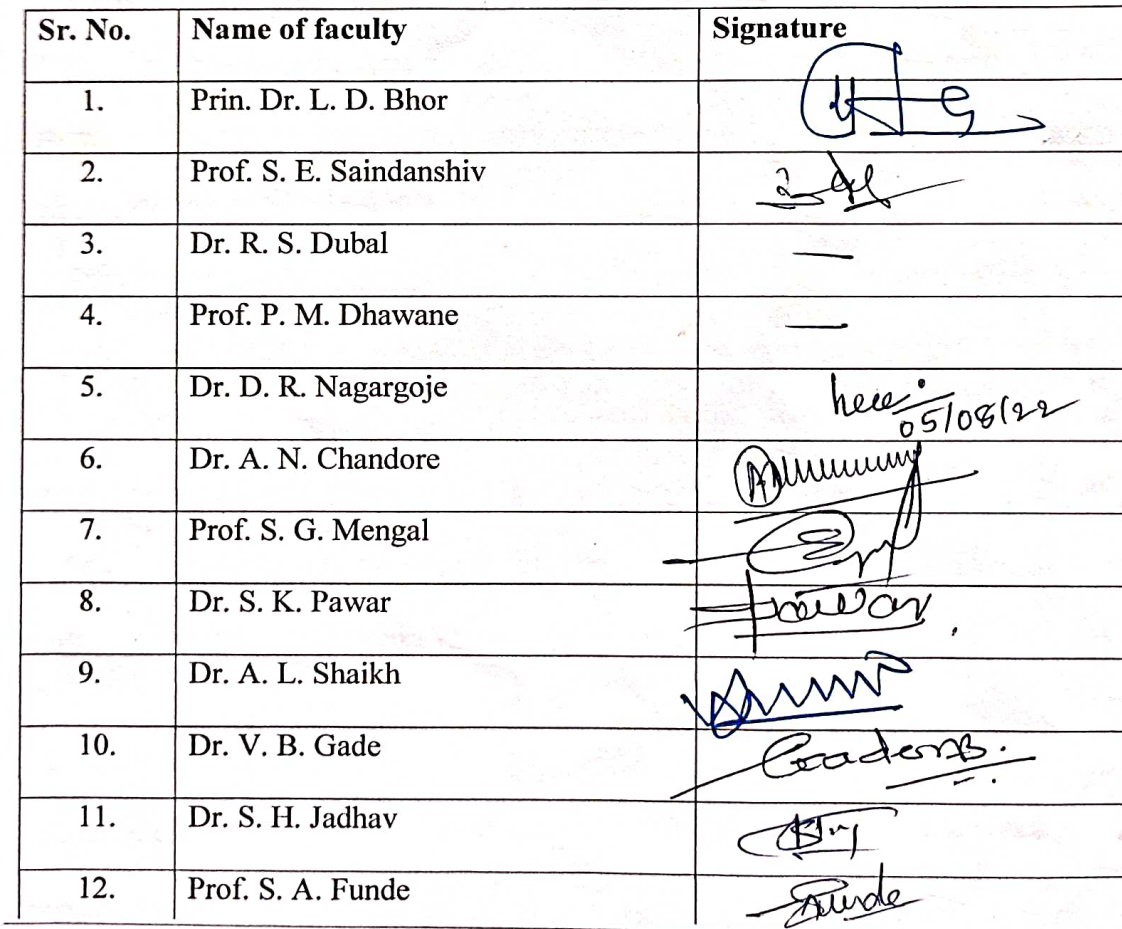 Sr. No. Name of faculty Signature
1. Prin. Dr. L. D. Bhor
2. Prof. S. E. Saindanshiv
3. Dr. R. S. Dubal —
4. Prof. P. M. Dhawane —
5. Dr. D. R. Nagargoje
05/08/22
6. Dr. A. N. Chandore
7. Prof. S. G. Mengal
8. Dr. S. K. Pawar Pawar
9. Dr. A. L. Shaikh
10. Dr. V. B. Gade
11. Dr. S. H. Jadhav
12. Prof. S. A. Funde Funde